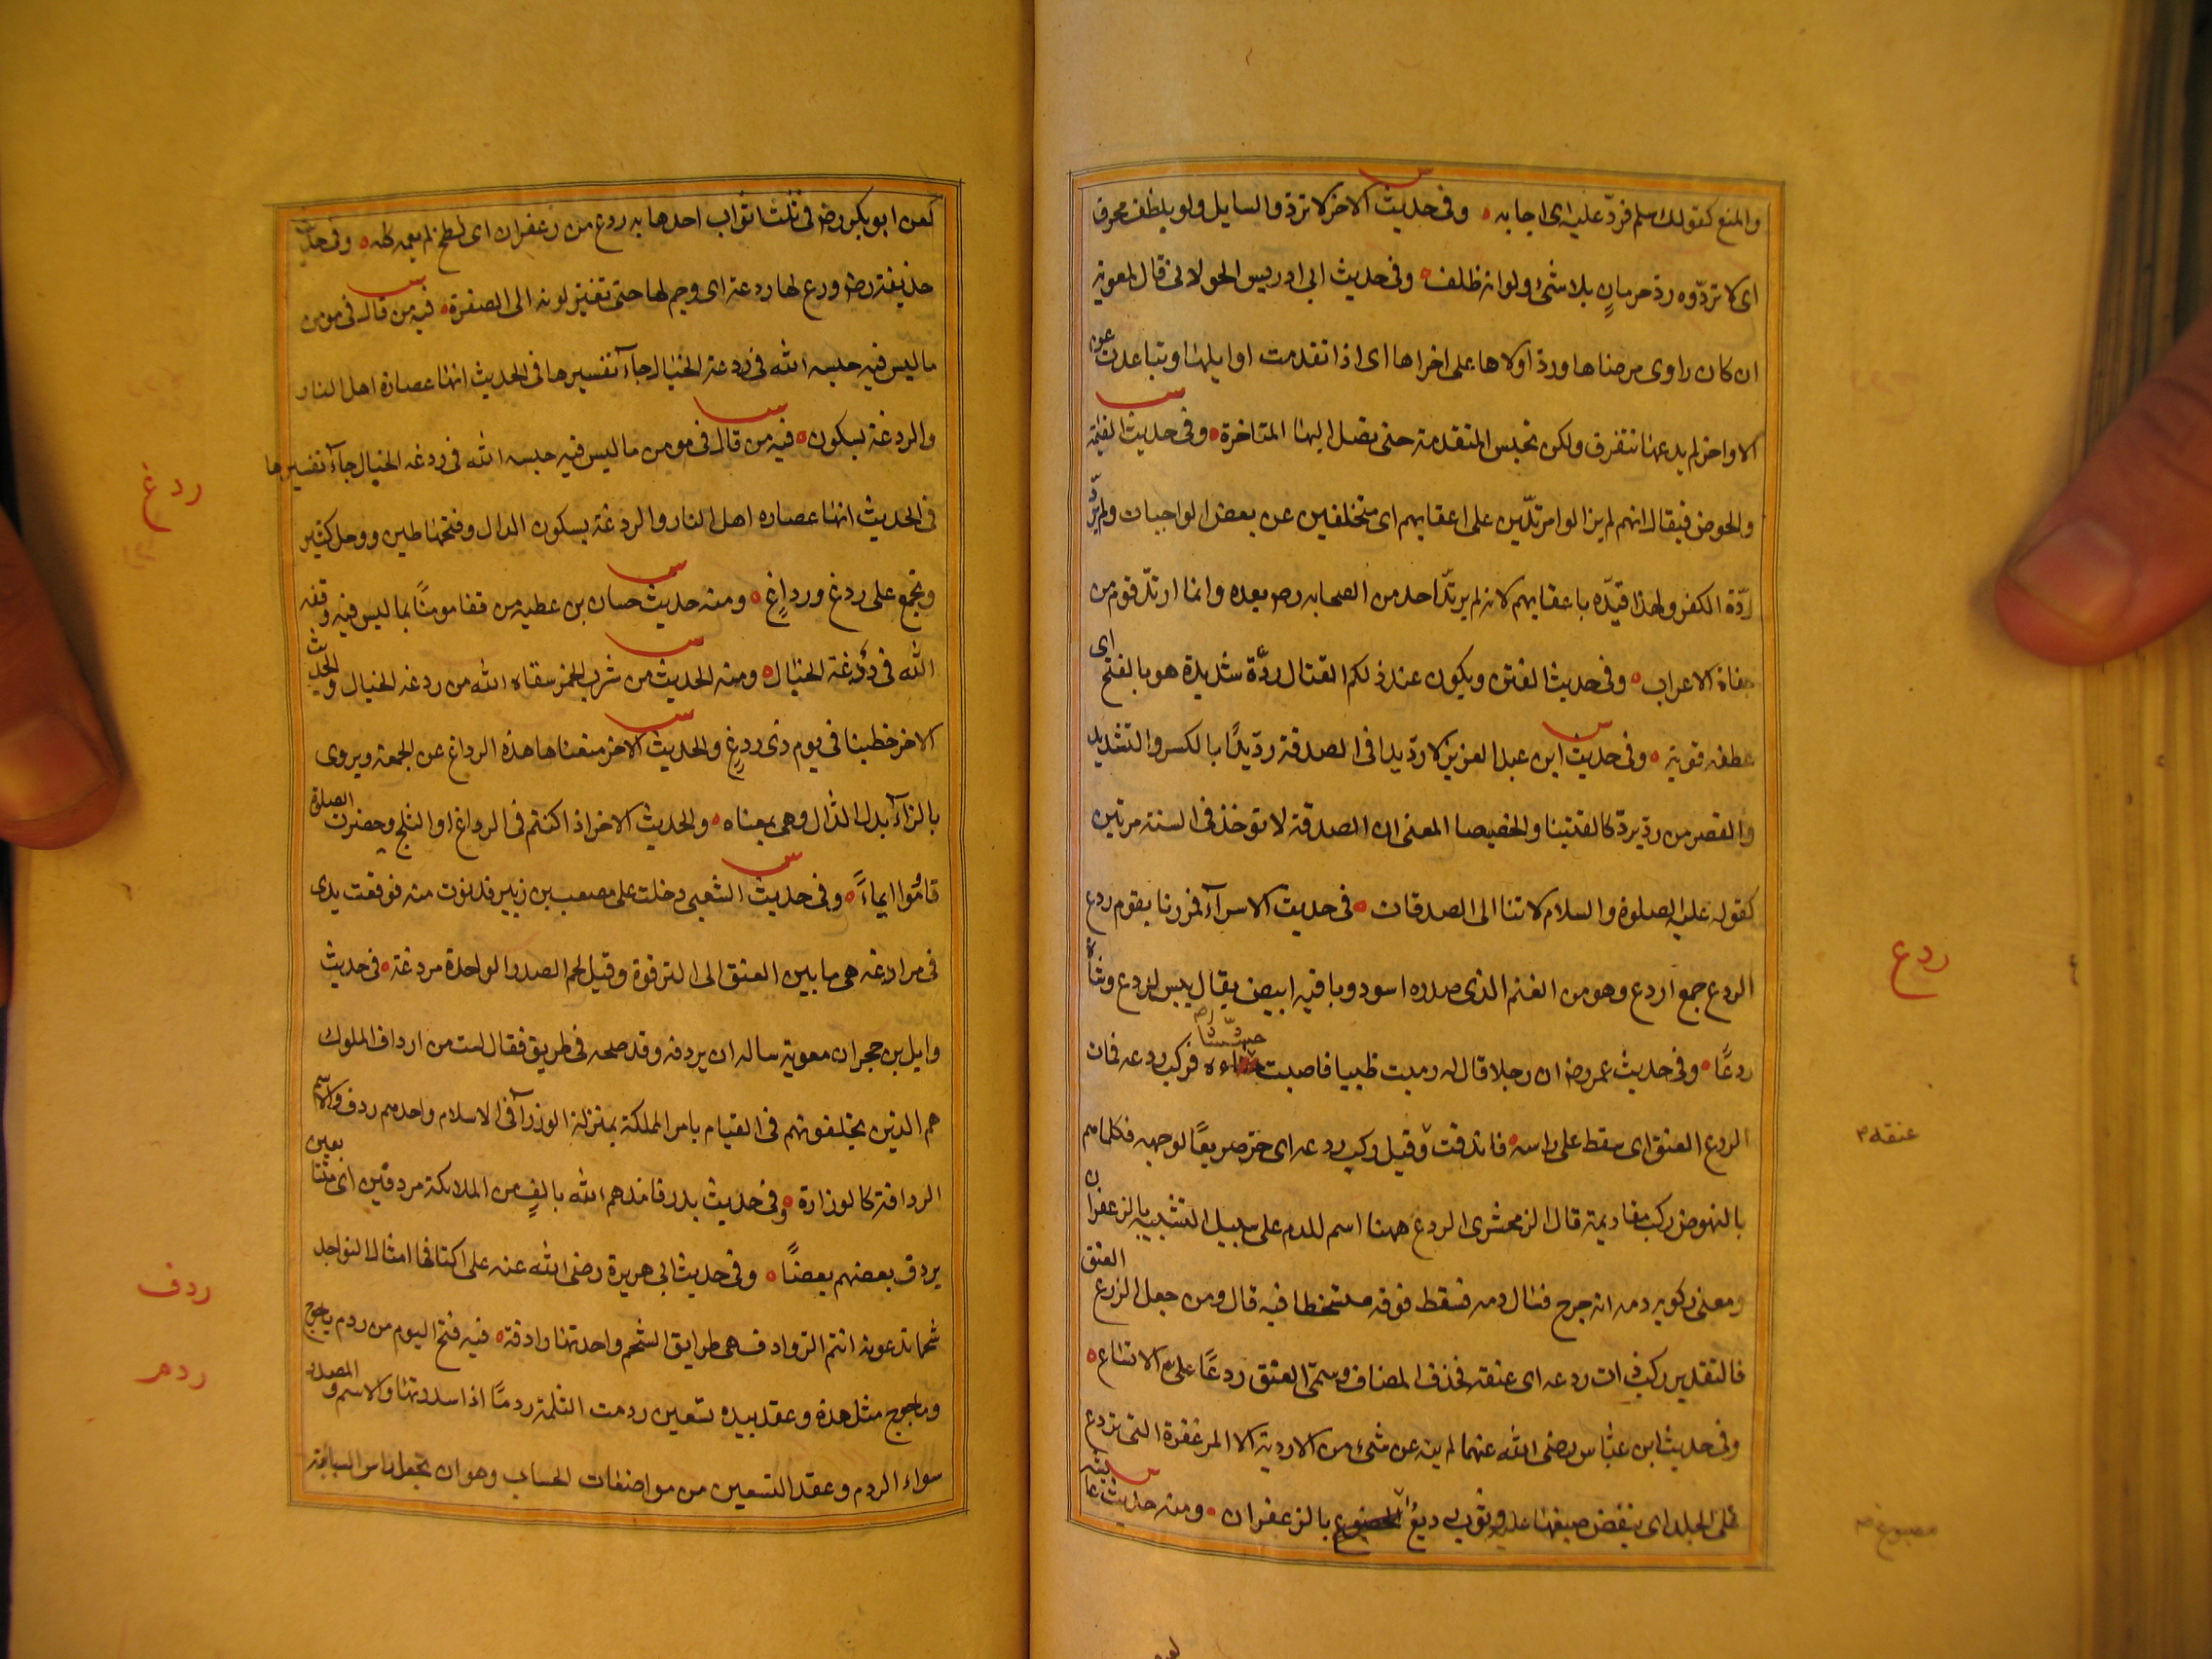 والمنع كقولك سلم فردّ عليه اى اجابه وفى حديث الاخر لا تردّوا السايل ولو بظلف محرق
اى لا تردّوه ردّ حرمانٍ بلا شئ ولو انه ظلف وفى حديث ابى ادريس الخولانى قال لمعوية
ان كان داوى مرضاها وردّ اولاها على اخراها اى اذا تقدمت اوايلها وتباعدت عن
الاواخر لم يدعها تتفرق ولكن يحبس المتقدمة حتى تصل اليها المتاخرة وفى حديث القيمة
والحوض فيقال انهم لم يزالوا مرتدّين على اعقابهم اى متخلفين عن بعض الواجبات ولم يرّد
ردّة الكفر ولهذا قيّده باعقابهم لانه لم يرتدّ احد من الصحابه رض بعده وانما ارتدّ قوم من
جفاة الاعراب وفى حديث الفتن ويكون عند ذلكم القتال ردّة شديدة هو بالفتح اى
عطفه قوية وفى حديث ابن عبد العزيز لا ردّيدا فى الصدقة ردّيدًا بالكسر والتشديد
والقصر من ردّ يردّ كالقتيتا والخصيصا المعنى ان الصدقة لا توخذ فى السنة مرتين
كقوله عليه الصلوة والسلام لا تنا الى الصدقات فى حديث الاسرآء فمررنا بقوم ردع
ردع
الردع جمع اردع وهو من الغنم الذى صدره اسود وباقيه ابيض يقال تيس اردع وشاة
ردعًا وفى حديث عمر رض ان رجلا قال له رميت ظبيا فاصبت خششاءه فركب ردعه فمات
الردع العنق اى سقط على راسه فاندقت وقيل ركب ردعه اى خرّ صريعًا لوجهه فكلما هم
عنقه
بالنهوض ركب مقاديمة قال الزمحشرى الردع ههنا اسم للدم على سبيل التشبيه بالزعفران
ومعنى ركوبه دمه انه جرح فسال دمه فسقط فوقه متشخطا فيه قال ومن جعل الردع العنق
فالتقدير ركب ذات ردعه اى عنقه فحذف المضاف وسمّى العنق ردعًا على الاتساع
وفى حديث ابن عبّاس رضى الله عنهما لم ينه عن شئ من الاردية الا المزعفرة التى تردع
على الجلد اى ينفض صبغها عليه وثوب رديع بالزعفران ومنه حديث عايشه
مصبوغ
كفن ابو بكر رض فى ثلث اثواب احدها به ردع من زعفران اى لطخ لم يعمه كله وفى حديث
حذيفة رض وردع لها ردعة اى وجم لها حتى تغيّر لونه الى الصفرة فيه من قال فى مومن
ما ليس فيه حبسه الله فى ردغة الخبال جآء تفسيرها فى الحديث انها عصارة اهل النار
والردغة بسكون فيه من قال فى مومن ما ليس فيه حبسه الله فى ردغه الخبال جآء تفسيرها
ردغ
فى الحديث انها عصاره اهل النار والردغة بسكون الدال وفتحها طين ووحل كثير
وتجمع على ردغ ورداغ ومنه حديث حسان بن عطيه من قفا مومنًا بما ليس فيه وقفه
الله فى ردغة الخبال ومنه الحديث من شرب الخمر سقاه الله من ردغه الخبال والحديث
الاخر خطبنا فى يوم ذى ردغٍ والحديث الاخر منعنا هذه الرداغ عن الجمعة ويروى
بالزآء بدل الدال وهى بمعناه والحديث الاخر اذا كنتم فى الرداغ او الثلج وحضرت الصلوة
فاومُوا ايماءً وفى حديث الشعبى دخلت على مصعب بن زبير فدنوت منه فوقعت يدى
فى مرادغه هى ما بين العنق الى الترقوة وقيل لحم الصدر الواحدة مردغة فى حديث
وايل بن حجر ان معوية ساله ان يردفه وقد صحبه فى طريق فقال لست من ارداف الملوك
هم الذين يخلفونهم فى القيام بامر المملكة بمنزلة الوزرآء فى الاسلام واحدهم ردف والاسم
الردافة كالوزارة وفى حديث بدر فامدهم الله بالفٍ من الملائكة مردفين اى متتابعين
يردف بعضهم بعضًا وفى حديث ابى هريرة رضى الله عنه على اكتافها امثال النواجد
ردف
شحما تدعونه انتم الروادف هى طرايق الشحم واحدتها رادفة فيه فتح اليوم من ردم ياجوج
ردم
وماجوج مثل هذه وعقد بيده تسعين ردمت الثلمة ردمًا اذا سددتها والاسم والمصدر
سواء الردم وعقد التسعين من مواضعات الحساب وهو ان تجعل راس السبابة